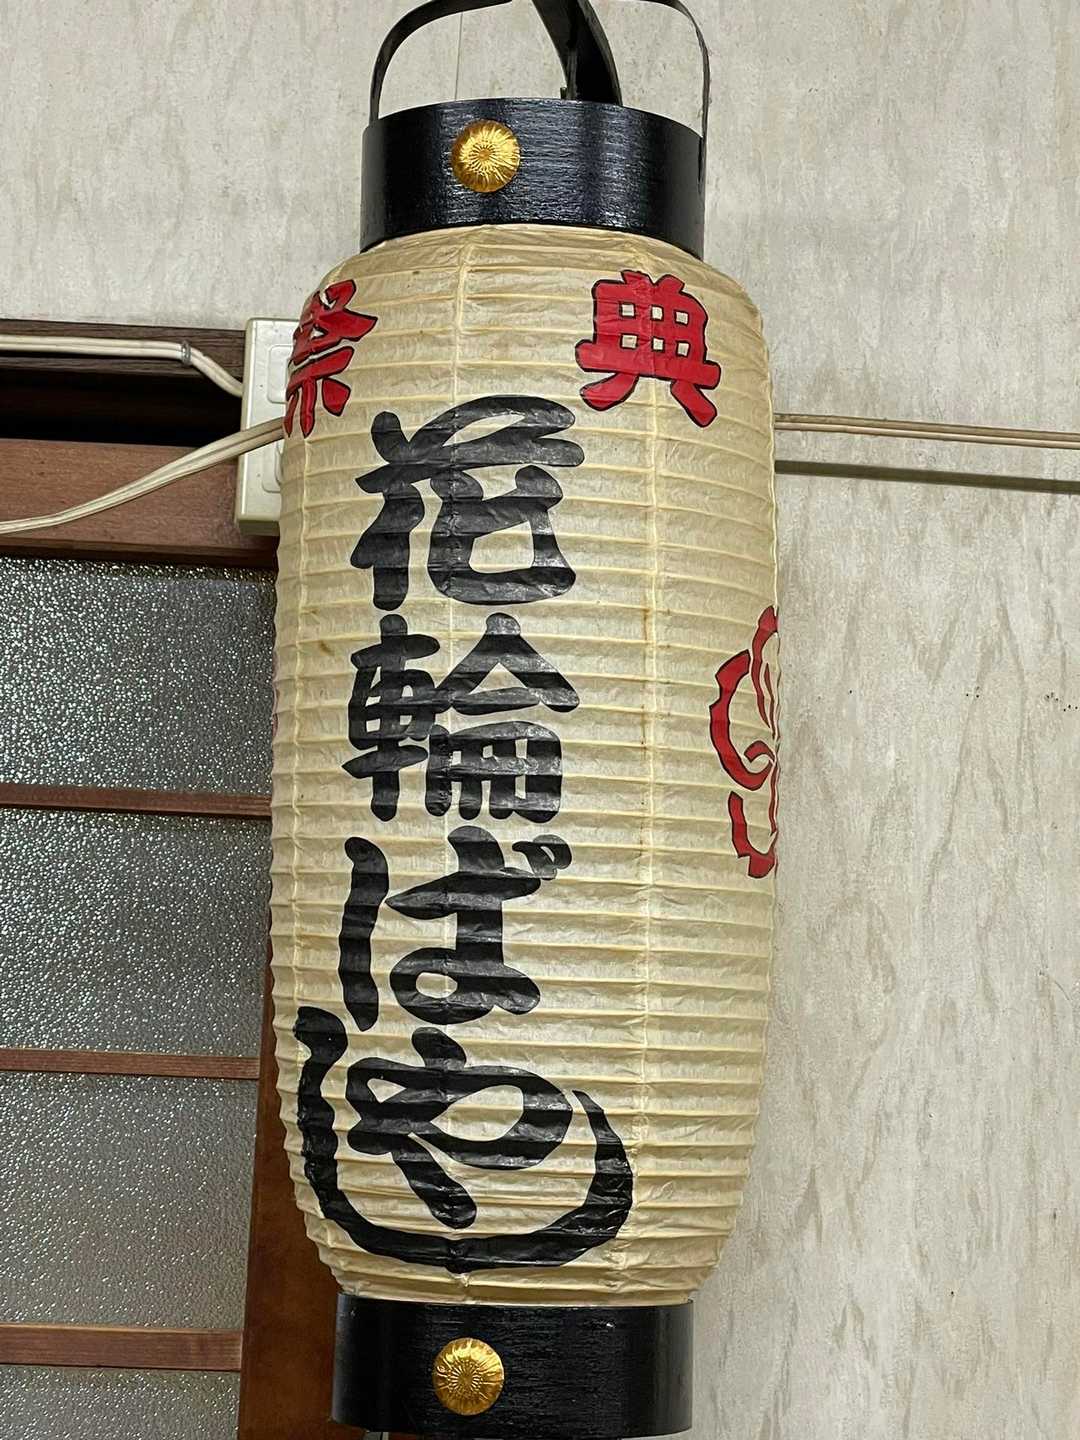 祭典
花輪ばやし